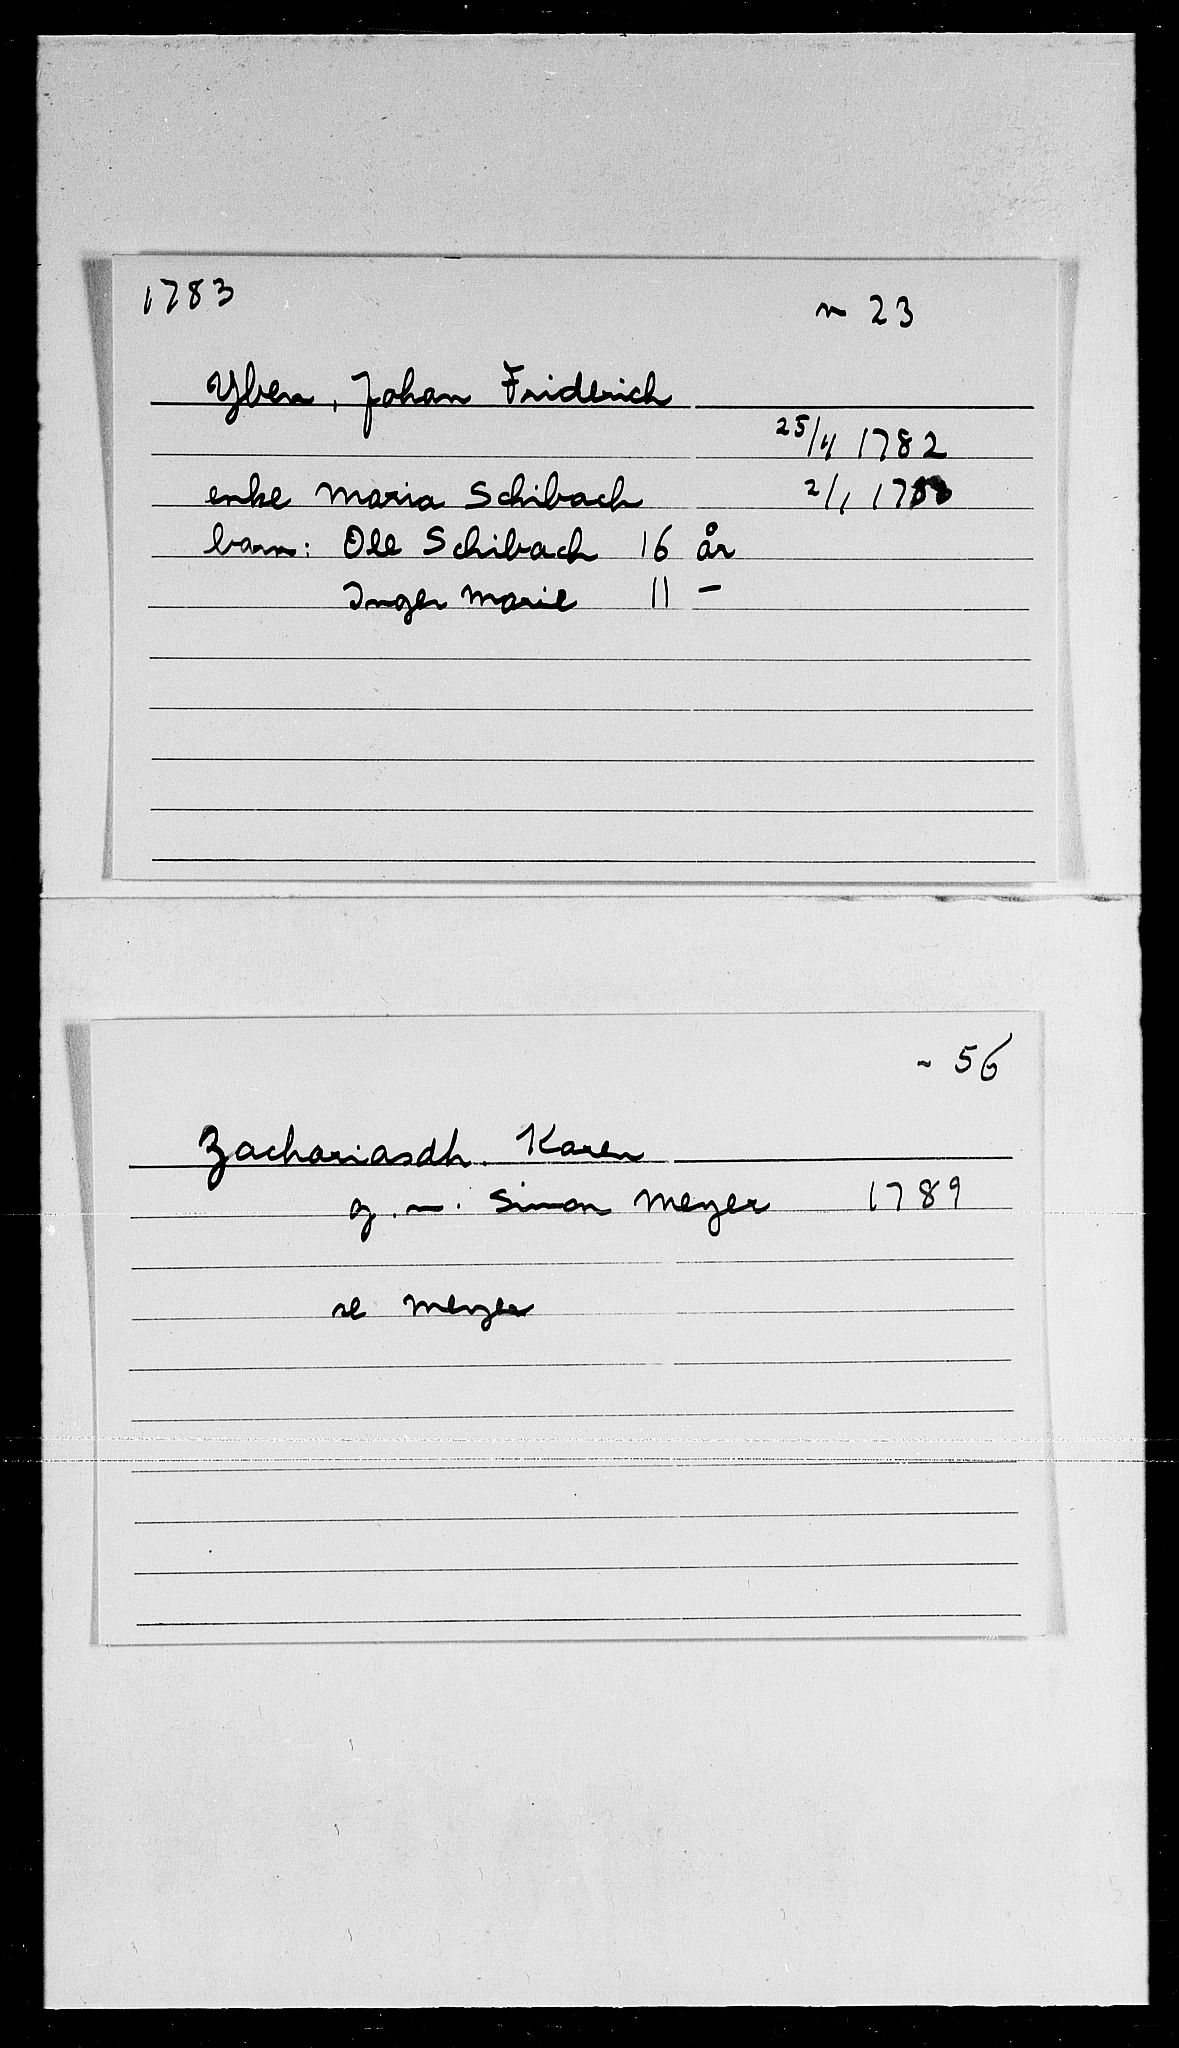 1783 n 23
Yben, Johan Friderich
25/11 1782
enke Maria Schibach 2/1 1783
barn: Ole Schibach 16 år
Inger Marie 11 -
- 56
Zachariasdh. Karen
g. m. Simon Meyer 1789
se Meyer